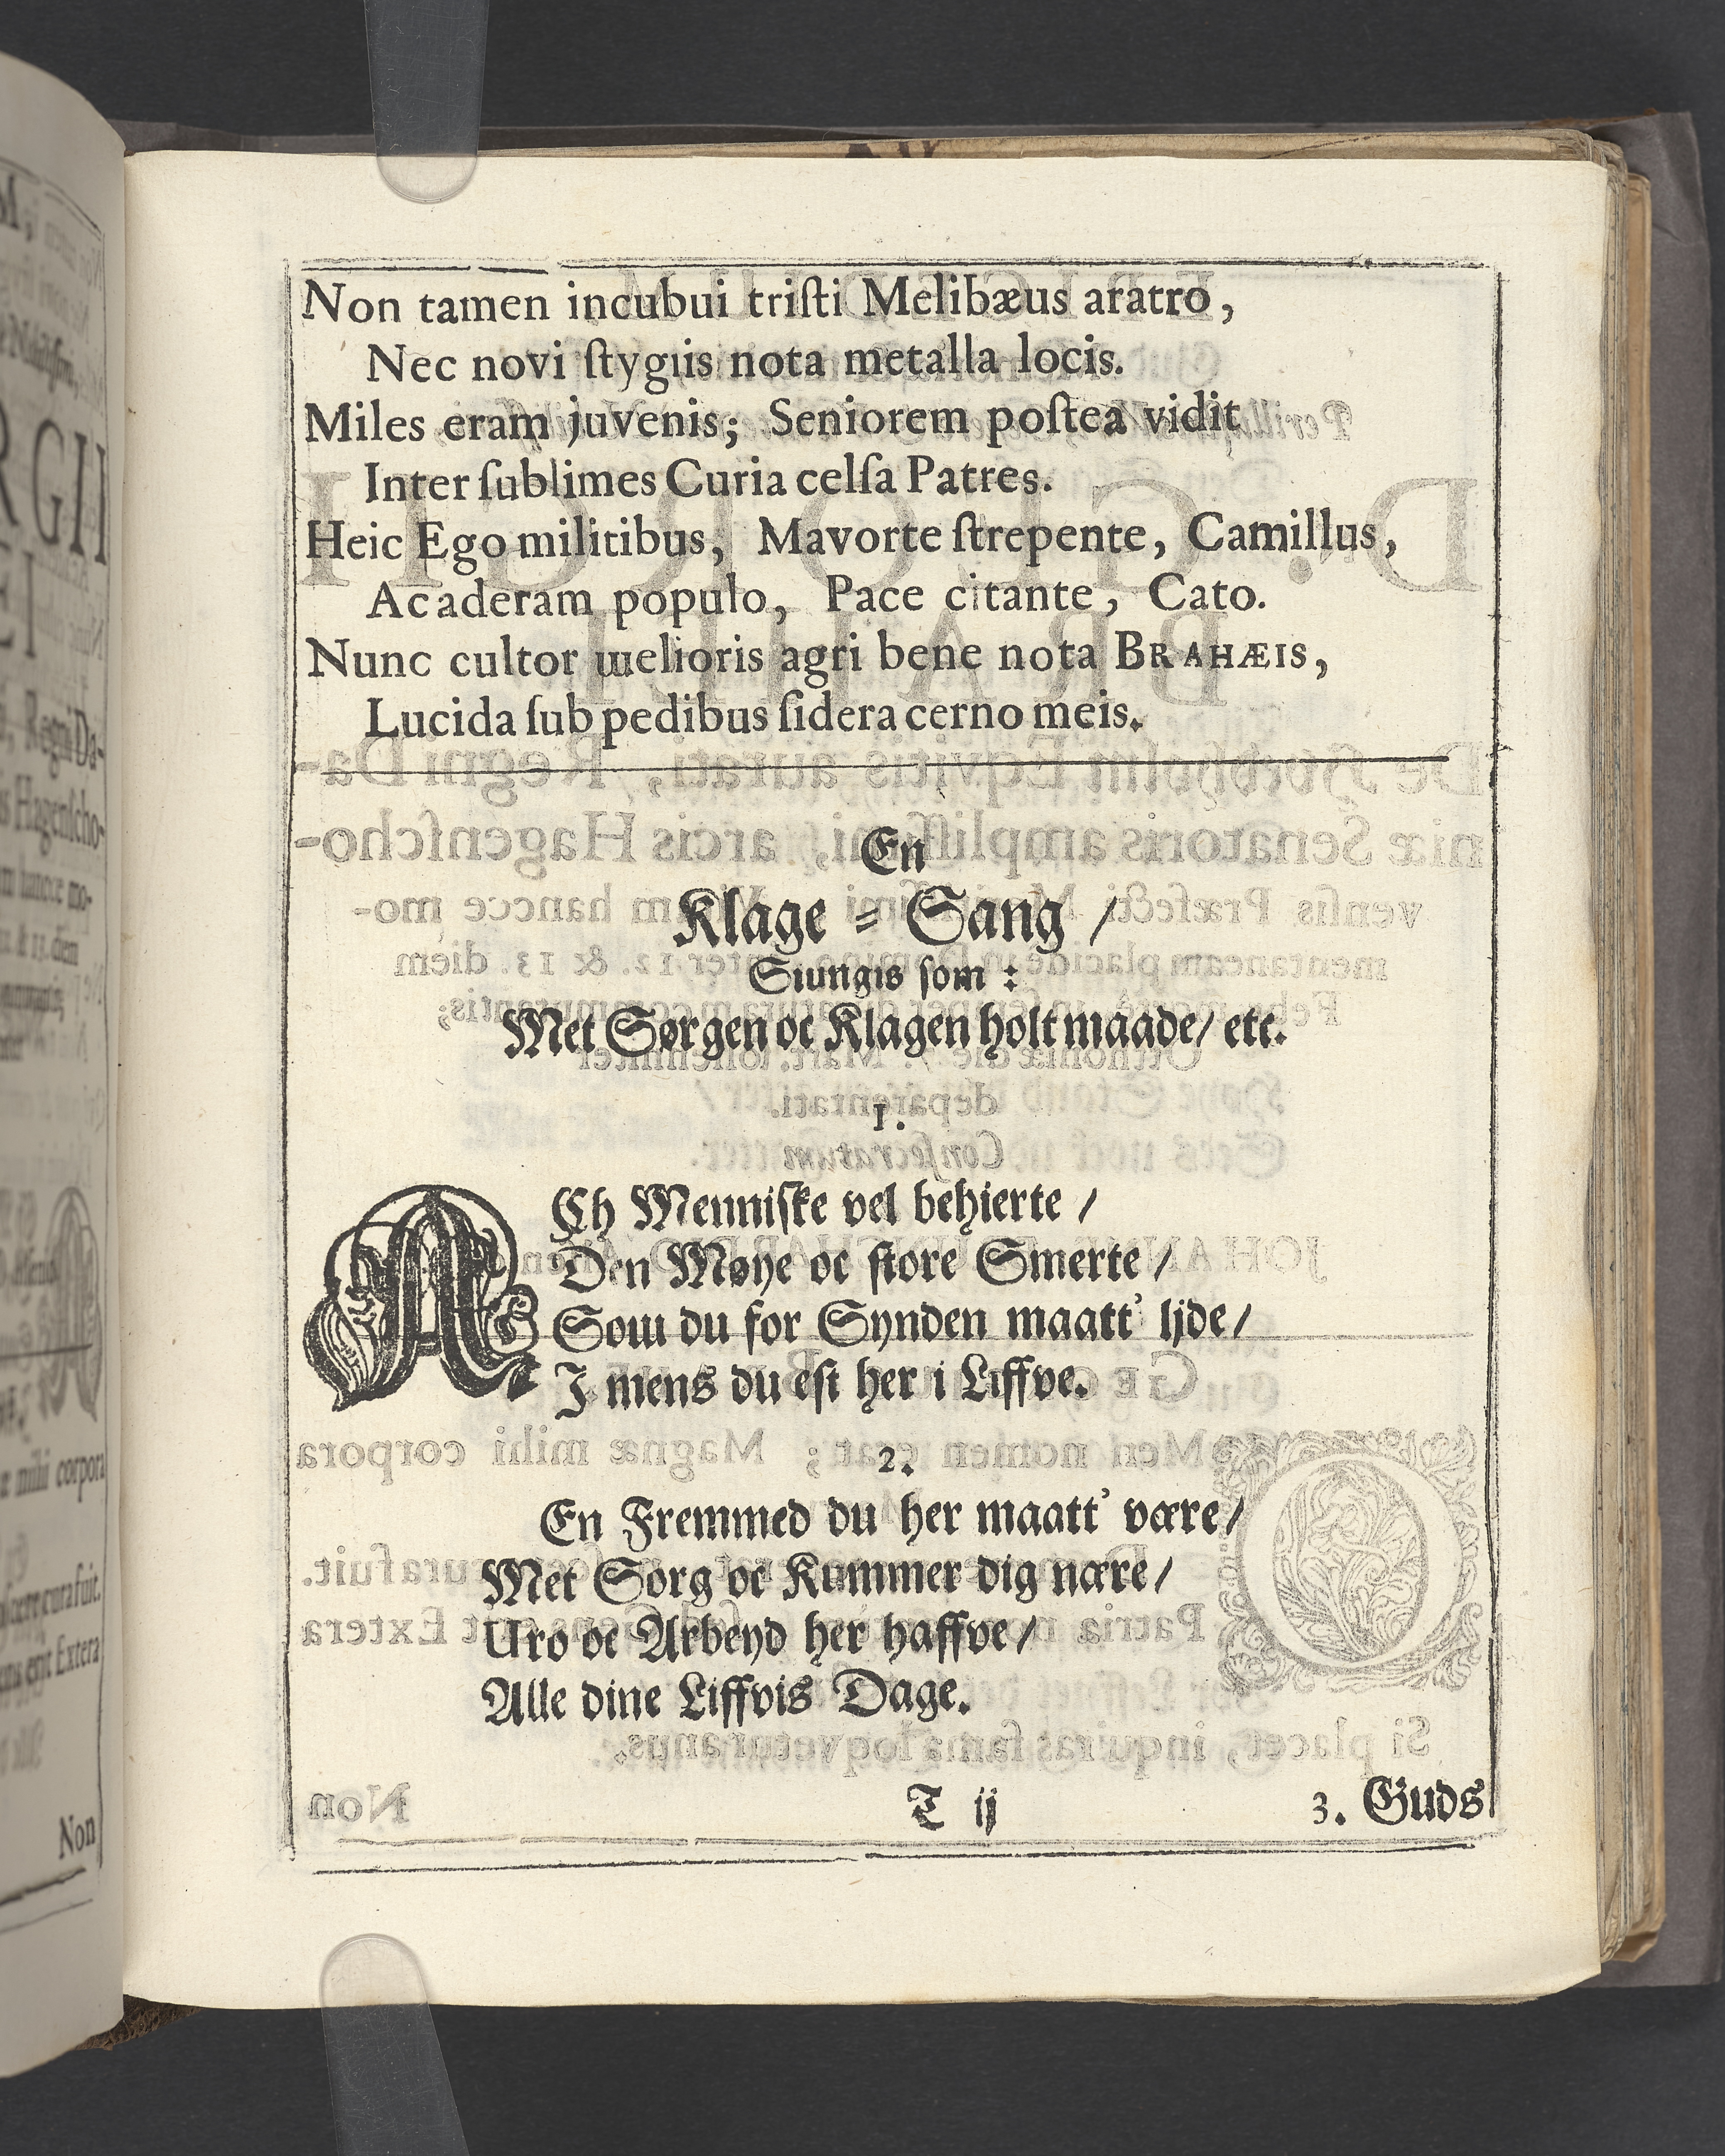 Non tamen incubui triſti Melibæus aratro,
Nec novi ſtygiis nota metalla locis.
Miles eram juvenis; Seniorem poſtea vidit
Inter ſublimes Curia celſa Patres.
Heic Ego militibus, Mavorte ſtrepente, Camillus,
Acaderam populo, Pace citante, Cato.
Nunc cultor melioris agri bene nota BRAHÆIS,
Lucida ſub pedibus ſidera cerno meis.
En
Klage = Sang /
Siungis ſom :
Met Sørgen oc Klagen holt maade/ etc.
1.
ACh Menniſke vel behierte /
Den Møye oc ſtore Smerte /
Som du for Synden maatt' ljde/
I mens du eſt her i Liffve.
2.
En Fremmed du her maatt' være/
Met Sorg oc Kummer dig nære/
Uro oc Arbeyd her haffve/
Alle dine Liffvis Dage.
T ij
3. Guds